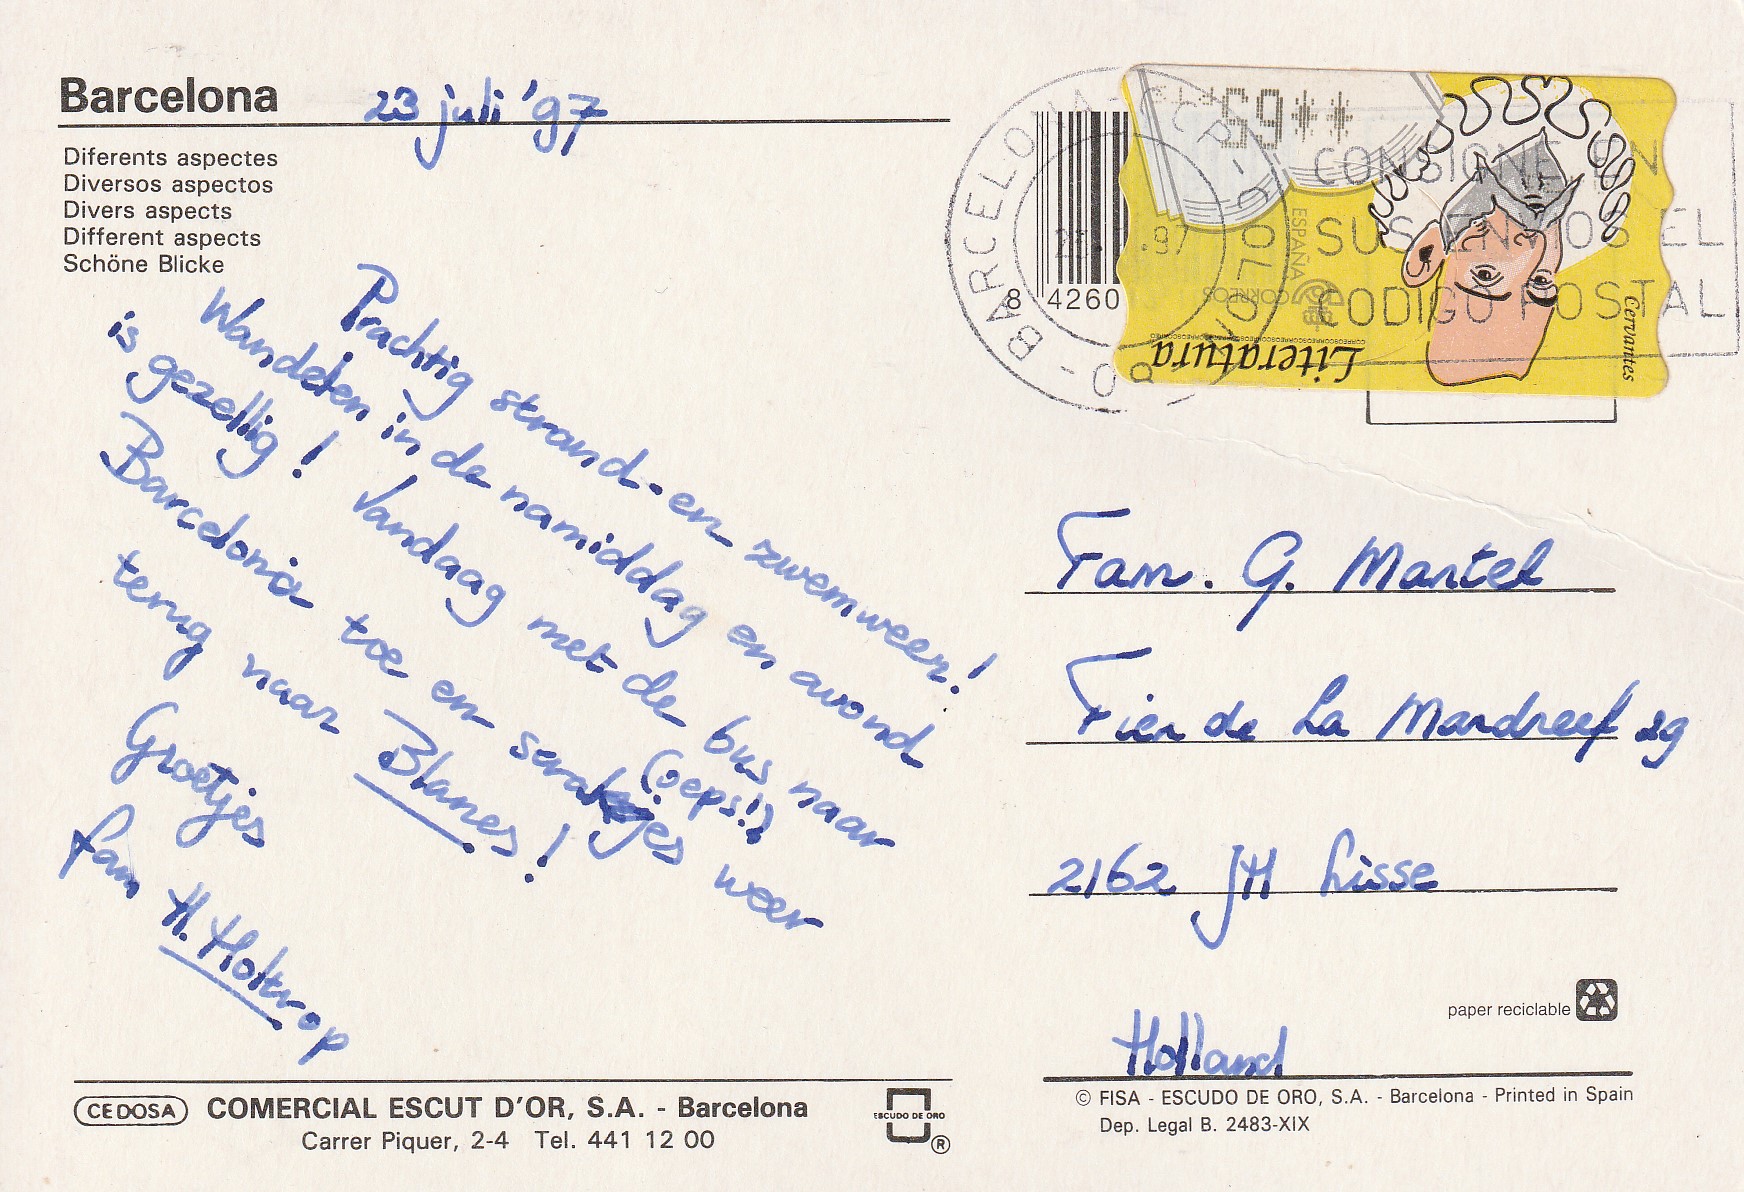 Barcelona 23 juli '97
Diferents aspectes
Diversos aspectos
Divers aspects
Different aspects
Schöne Blicke
Prachtig strand- en zwemweer!
Wandelen in de namiddag en avond
is gezellig! Vandaag met de bus naar
(oeps!)
Barcelona toe en weer
terug naar Blanes!
Groetjes
fam H. Holtrop
CEDOSA COMERCIAL ESCUT D'OR, S.A. - Barcelona
Carrer Piquer, 2-4 Tel. 441 12 00
ESCUDO DE ORO
®
8 4260
BARCELONA
.97
**65
CONSIGNE EN
SUS ENVIOS EL
CODIGO POSTAL
ESPAÑA
CORREOS
Literatura
Cervantes
Fam. G. Mantel
Fier de la Mardreef 29
2162 JH Lisse
Holland
paper reciclable
© FISA - ESCUDO DE ORO, S.A. - Barcelona - Printed in Spain
Dep. Legal B. 2483-XIX